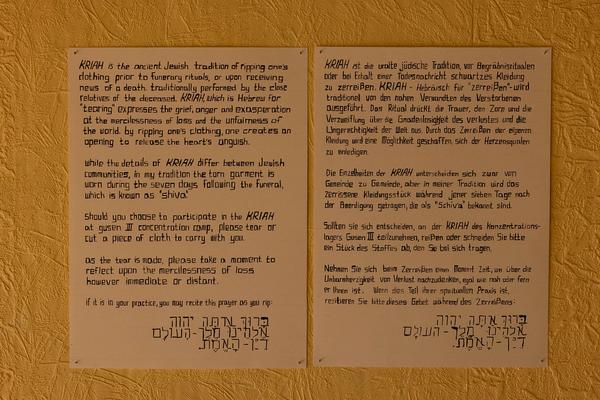 KRIAH is the ancient Jewish tradition of ripping one's
clothing prior to funerary rituals, or upon receiving
news of a death. traditionally performed by the close
relatives of the deceased, KRIAH, which is Hebrew for
"tearing" expresses the grief, anger and exasperation
at the mercilessness of loss and the unfairness of
the world. by ripping one's clothing, one creates an
opening to release the heart's anguish.
while the details of KRIAH differ between Jewish
communities, in my tradition the torn garment is
worn during the seven days following the funeral,
which is known as "shiva"
Should you choose to participate in the KRIAH
at gusen III concentration camp, please tear or
cut a piece of cloth to carry with you.
as the tear is made, please take a moment to
reflect upon the mercilessness of loss
however immediate or distant.
if it is in your practice, you may recite this prayer as you rip:
ברוך אתה יהוה
אלהינו מלך-העולם
דין-האמת.
KRIAH ist die uralte jüdische Tradition, vor Begräbnisritualen
oder bei Erhalt einer Todesnachricht schwarzes Kleidung
zu zerreißen. KRIAH - Hebräisch für "zerreißen"-wird
traditionell von den nahen Verwandten des Verstorbenen
ausgeführt. Das Ritual drückt die Trauer, den Zorn und die
Verzweiflung über die Gnadenlosigkeit des Verlustes und die
Ungerechtigkeit der Welt aus. Durch das Zerreißen der eigenen
Kleidung wird eine Möglichkeit geschaffen, sich der Herzensqualen
zu entledigen.
Die Einzelheiten der KRIAH unterscheiden sich zwar von
Gemeinde zu Gemeinde, aber in meiner Tradition wird das
zerrissene Kleidungsstück während jener sieben Tage nach
der Beerdigung getragen, die als "Schiv'a" bekannt sind.
Sollten sie sich entscheiden, an der KRIAH des Konzentrations-
lagers Gusen III teilzunehmen, reißen oder schneiden Sie bitte
ein Stück des Stoffes ab, den Sie bei sich tragen.
Nehmen Sie sich beim Zerreißen einen Moment Zeit, um über die
Unbarmherzigkeit von Verlust nachzudenken, egal wie nah oder fern
er Ihnen ist. Wenn dies Teil Ihrer spirituellen Praxis ist,
rezitieren Sie bitte dieses Gebet während des Zerreißens:
ברוך אתה יהוה
אלהינו מלך-העולם
דין-האמת.